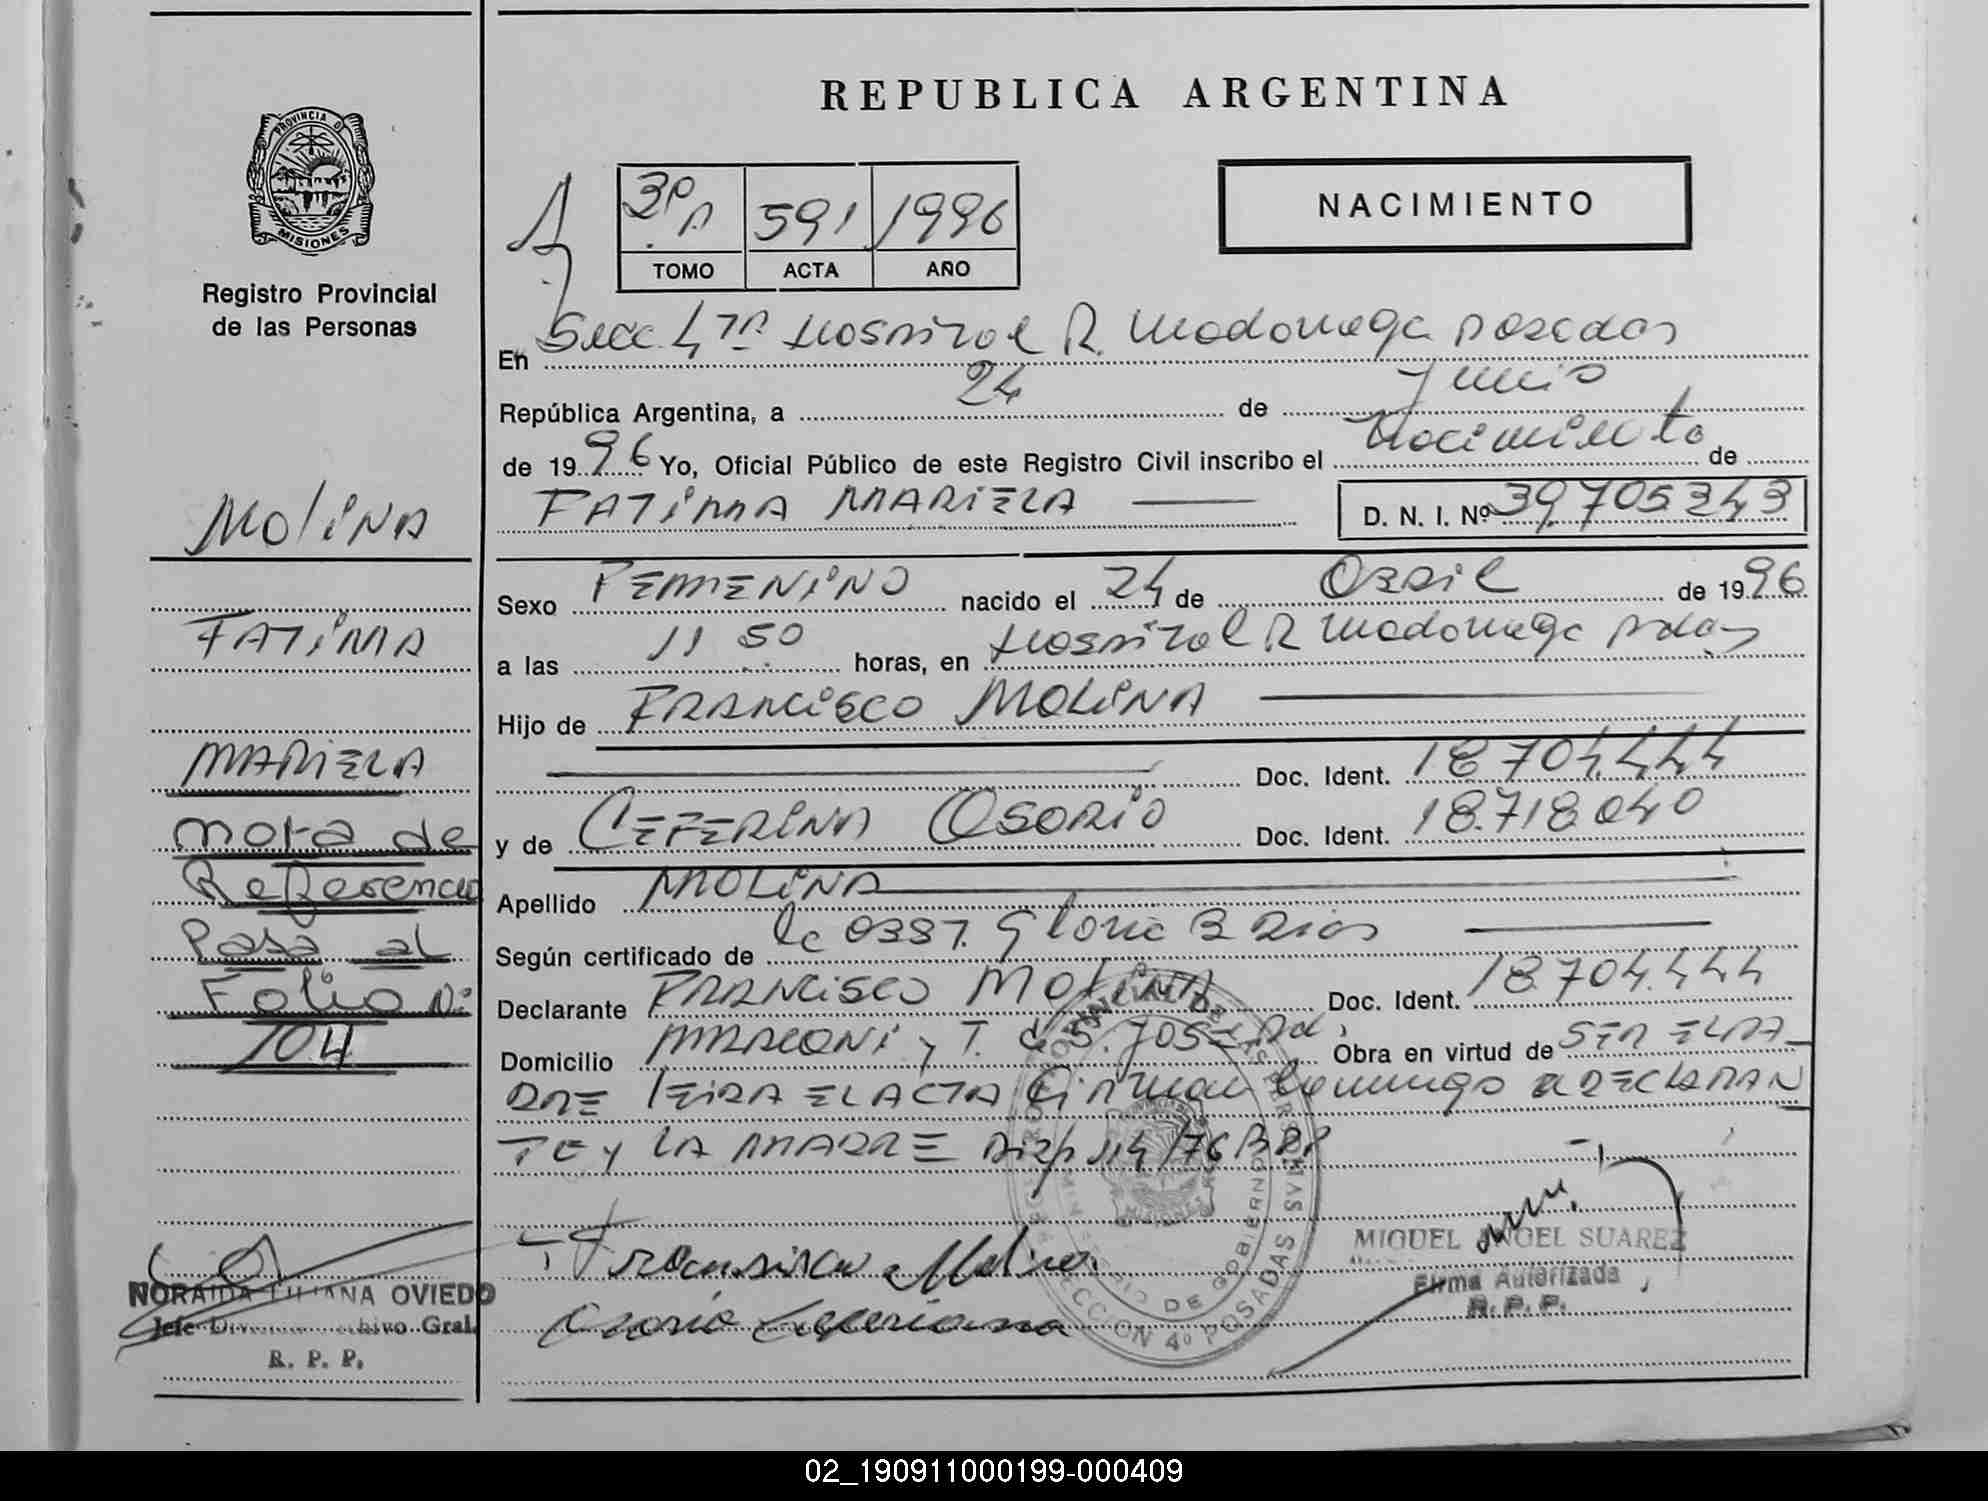 REPUBLICA ARGENTINA
PROVINCIA D
MISIONES
Registro Provincial
de las Personas
591 1996
TOMO ACTA AÑO
NACIMIENTO
En Secc 4ta Hospital R. Madariaga Posadas
República Argentina, a 24 de Junio
de 1996 Yo, Oficial Público de este Registro Civil inscribo el Nacimiento de
FATIMA MARIELA D. N. I. Nº 39.705.343
MOLINA
FATIMA
MARIELA
nota de
Referencia
Pasa al
Folio Nº
104
Sexo FEMENINO nacido el 24 de Abril de 1996
a las 11 50 horas, en Hospital R Madariaga Pdas
Hijo de FRANCISCO MOLINA
Doc. Ident. 18.704.444
y de CEFERINA OSORIO Doc. Ident. 18.718.040
Apellido MOLINA
Según certificado de Gloria B Rios
Declarante FRANCISCO MOLINA Doc. Ident. 18.704.444
Domicilio MARCONI y T. de S. JOSE Pd. Obra en virtud de SER EL PA
DRE LEIDA EL ACTA Firman conmigo el DECLARAN
TE y LA MADRE Disp 114/76 RPP
Francisco Molina
Osorio
MIGUEL ANGEL SUAREZ
Firma Autorizada
R. P. P.
DE GOBIERNO
SECCION 4º POSADAS
NORAIDA LILIANA OVIEDO
Jefe Archivo Gral.
R. P. P.
02_190911000199-000409